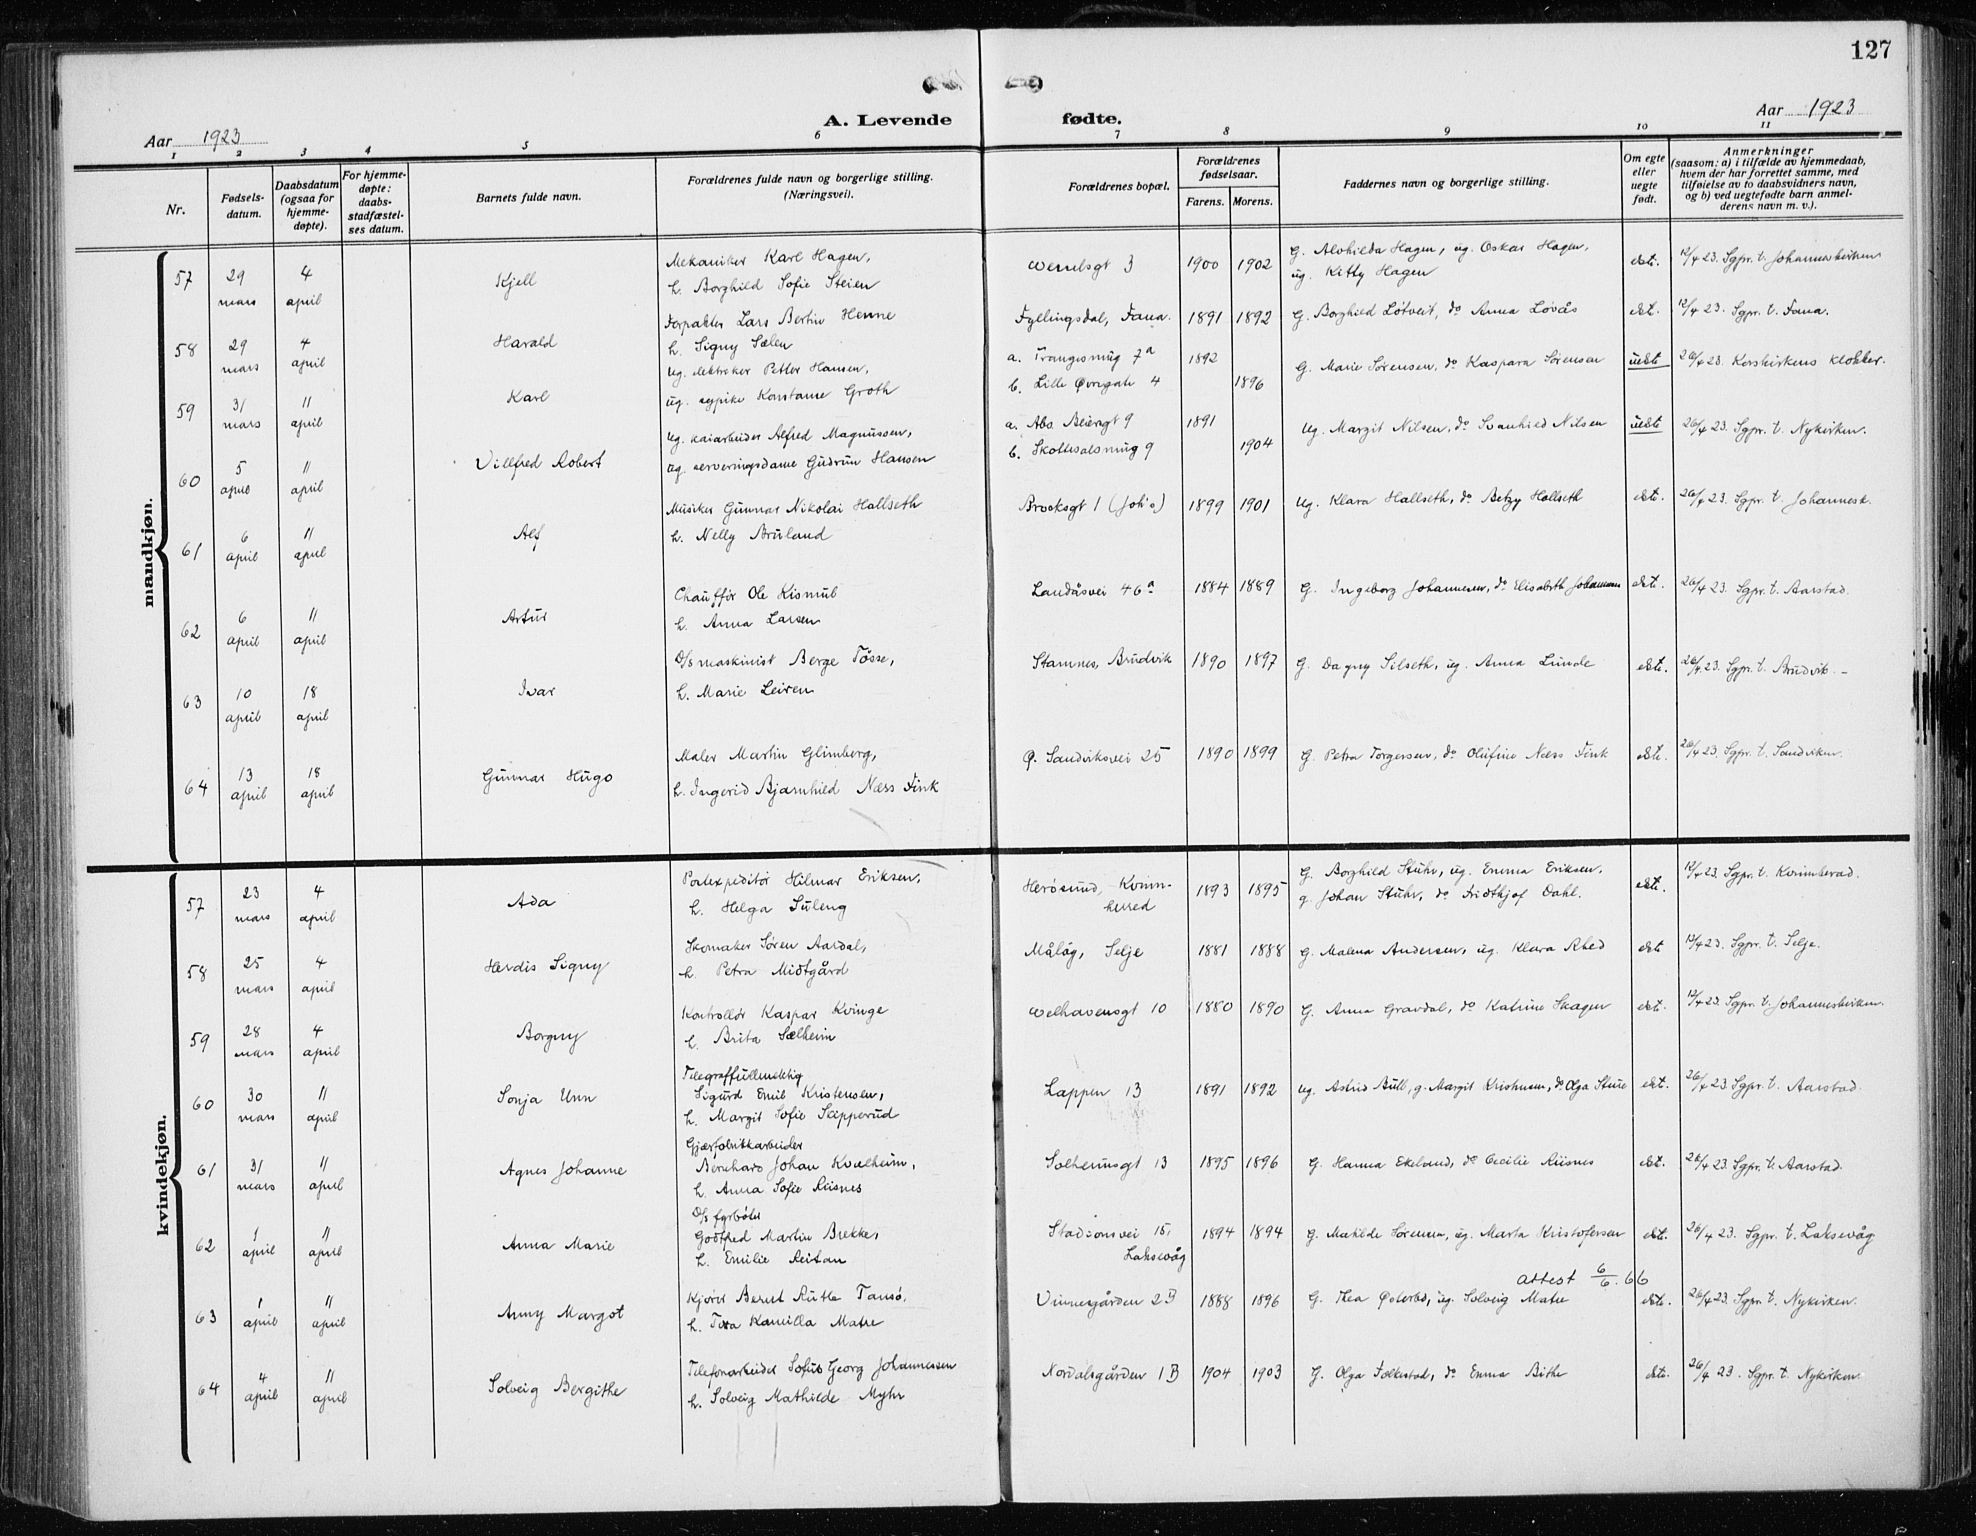 127
Aar 1923
A. Levende fødte.
Aar 1923
1 2 3 4 5 6 7 8 9 10 11
Nr.
Fødsels-
datum.
Daabsdatum
(ogsaa for
hjemme-
døpte).
For hjemme-
døpte:
daabs-
stadfæstel-
ses datum.
Barnets fulde navn.
Forældrenes fulde navn og borgerlige stilling.
(Næringsvei).
Forældrenes bopæl.
Forældrenes
fødselsaar.
Farens. Morens.
Faddernes navn og borgerlige stilling.
Om egte
eller
uegte
født.
Anmerkninger
(saasom: a) i tilfælde av hjemmedaab,
hvem der har forrettet samme, med
tilføielse av to daabsvidners navn,
og b) ved uegtefødte barn anmel-
derens navn m. v.).
mandkjøn.
57 29 mars 4 april Kjell
Mekaniker Karl Hagen,
h. Borghild Sofie Steien
Wesselsgt 3 1900 1902
G. Alvhilda Hagen, ug. Oskar Hagen,
ug. Kitty Hagen
ekte. 12/4 23. Sgpr. t. Johanneskirken
58 29 mars 4 april Harald
Forpakter Lars Bertin Henne
h. Signy Sælen
Fyllingsdal, Fana. 1891 1892
G. Borghild Løtveit, do Anna Løvås
ekte. 12/4 23. Sgpr. t. Fana.
59 31 mars 11 april Karl
ug. elektriker Petter Hansen,
ug. sypike Konstanse Groth
a. Trangesmug 7a 1892
b. Lille Øvregate 4 1896
G. Marie Sørensen, do Kaspara Sørensen
uekte 26/4 23. Korskirkens klokker.
60 5 april 11 april Villfred Robert
ug. kaiarbeider Alfred Magnussen,
ug. serveringsdame Gudrun Hansen
a. Abs. Beiersgt 9 1891
b. Skottesalsmug 9 1904
ug. Margit Nilsen, do Svanhild Nilsen
uekte 26/4 23. Sgpr. t. Nykirken.
61 6 april 11 april Alf
Musiker Gunnar Nikolai Hallseth
h. Nelly Bruland
Brooksgt 1 (Joh's) 1899 1901
ug. Klara Hallseth, do Betzy Hallseth
ekte. 26/4 23. Sgpr. t. Johannesk.
62 6 april 11 april Artur
Chauffør Ole Kismul
h. Anna Larsen
Landåsvei 46a 1884 1889
G. Ingeborg Johannesen, do Elisabeth Johannesen
ekte. 26/4 23. Sgpr. t. Aarstad.
63 10 april 18 april Ivar
D/s maskinist Berge Tøsse,
h. Marie Leiren
Stamnes, Brudvik 1890 1897
G. Dagny Silseth, ug. Anna Lunde
ekte. 26/4 23. Sgpr. t. Brudvik. –
64 13 april 18 april Gunnar Hugo
Maler Martin Glimberg,
h. Ingerid Bjarnhild Næss Fink
Ø. Sandviksvei 25 1890 1899
G. Petra Torgersen, do Olufine Næss Fink
ekte. 26/4 23. Sgpr. t. Sandviken.
kvindekjøn.
57 23 mars 4 april Ada
Postexpeditør Hilmar Eriksen,
h. Helga Suleng
Herøsund, Kvinn-
herred 1893 1895
G. Borghild Stuhr, ug. Emma Eriksen.
g. Johan Stuhr, do Fridtkjof Dahl.
ekte. 12/4 23. Sgpr. t. Kvinnherad.
58 25 mars 4 april Herdis Signy
Skomaker Søren Aardal,
h. Petra Midtgård
Måløy, Selje 1881 1888
G. Malena Andersen, ug. Klara Åhed
ekte 12/4 23. Sgpr. t. Selje.
59 28 mars 4 april Borgny
Kontrollør Kaspar Kvinge
h. Brita Sælheim
Welhavensgt 10 1880 1890
G. Anna Gravdal, do Katrine Skagen
ekte. 12/4 23. Sgpr. t. Johanneskirken.
60 30 mars 11 april Sonja Unn
Telegraffullmektig
Sigurd Emil Kristensen,
h. Margit Sofie Skipperud
Lappen 13 1891 1892
ug. Astrid Bull, g. Margit Kristensen, do Olga Sture
ekt. 26/4 23. Sgpr. t. Aarstad.
61 31 mars 11 april Agnes Johanne
Gjærfabrikkarbeider
Bernhard Johan Kvalheim,
h. Anna Sofie Risnes
Solheimsgt 13 1895 1896
G. Hanna Ekeland, do Cecilie Risnes
ekt. 26/4 23. Sgpr. t. Aarstad.
62 1 april 11 april Anna Marie
D/s fyrbøter
Godtfred Martin Brekke,
h. Emilie Reitan
Stadionsvei 15,
Laksevåg 1894 1894
G. Mathilde Sørensen, ug. Marta Kristofersen
ekt. 26/4 23. Sgpr. t. Laksevåg
attest 6/6. 66
63 1 april 11 april Anny Margot
Kjører Bernt Rutle Tansø,
h. Tora Kamilla Matre
Vinnesgården 2B 1888 1896
G. Thea Østerbø, ug. Solveig Matre
ekte. 26/4 23. Sgpr. t. Nykirken.
64 4 april 11 april Solveig Bergithe
Telefonarbeider Sofus Georg Johannessen
h. Solveig Mathilde Myhr
Nordalsgården 1B 1904 1903
G. Olga Folkestad, do Emma Bithe
ekte. 26/4 23. Sgpr. t. Nykirken.